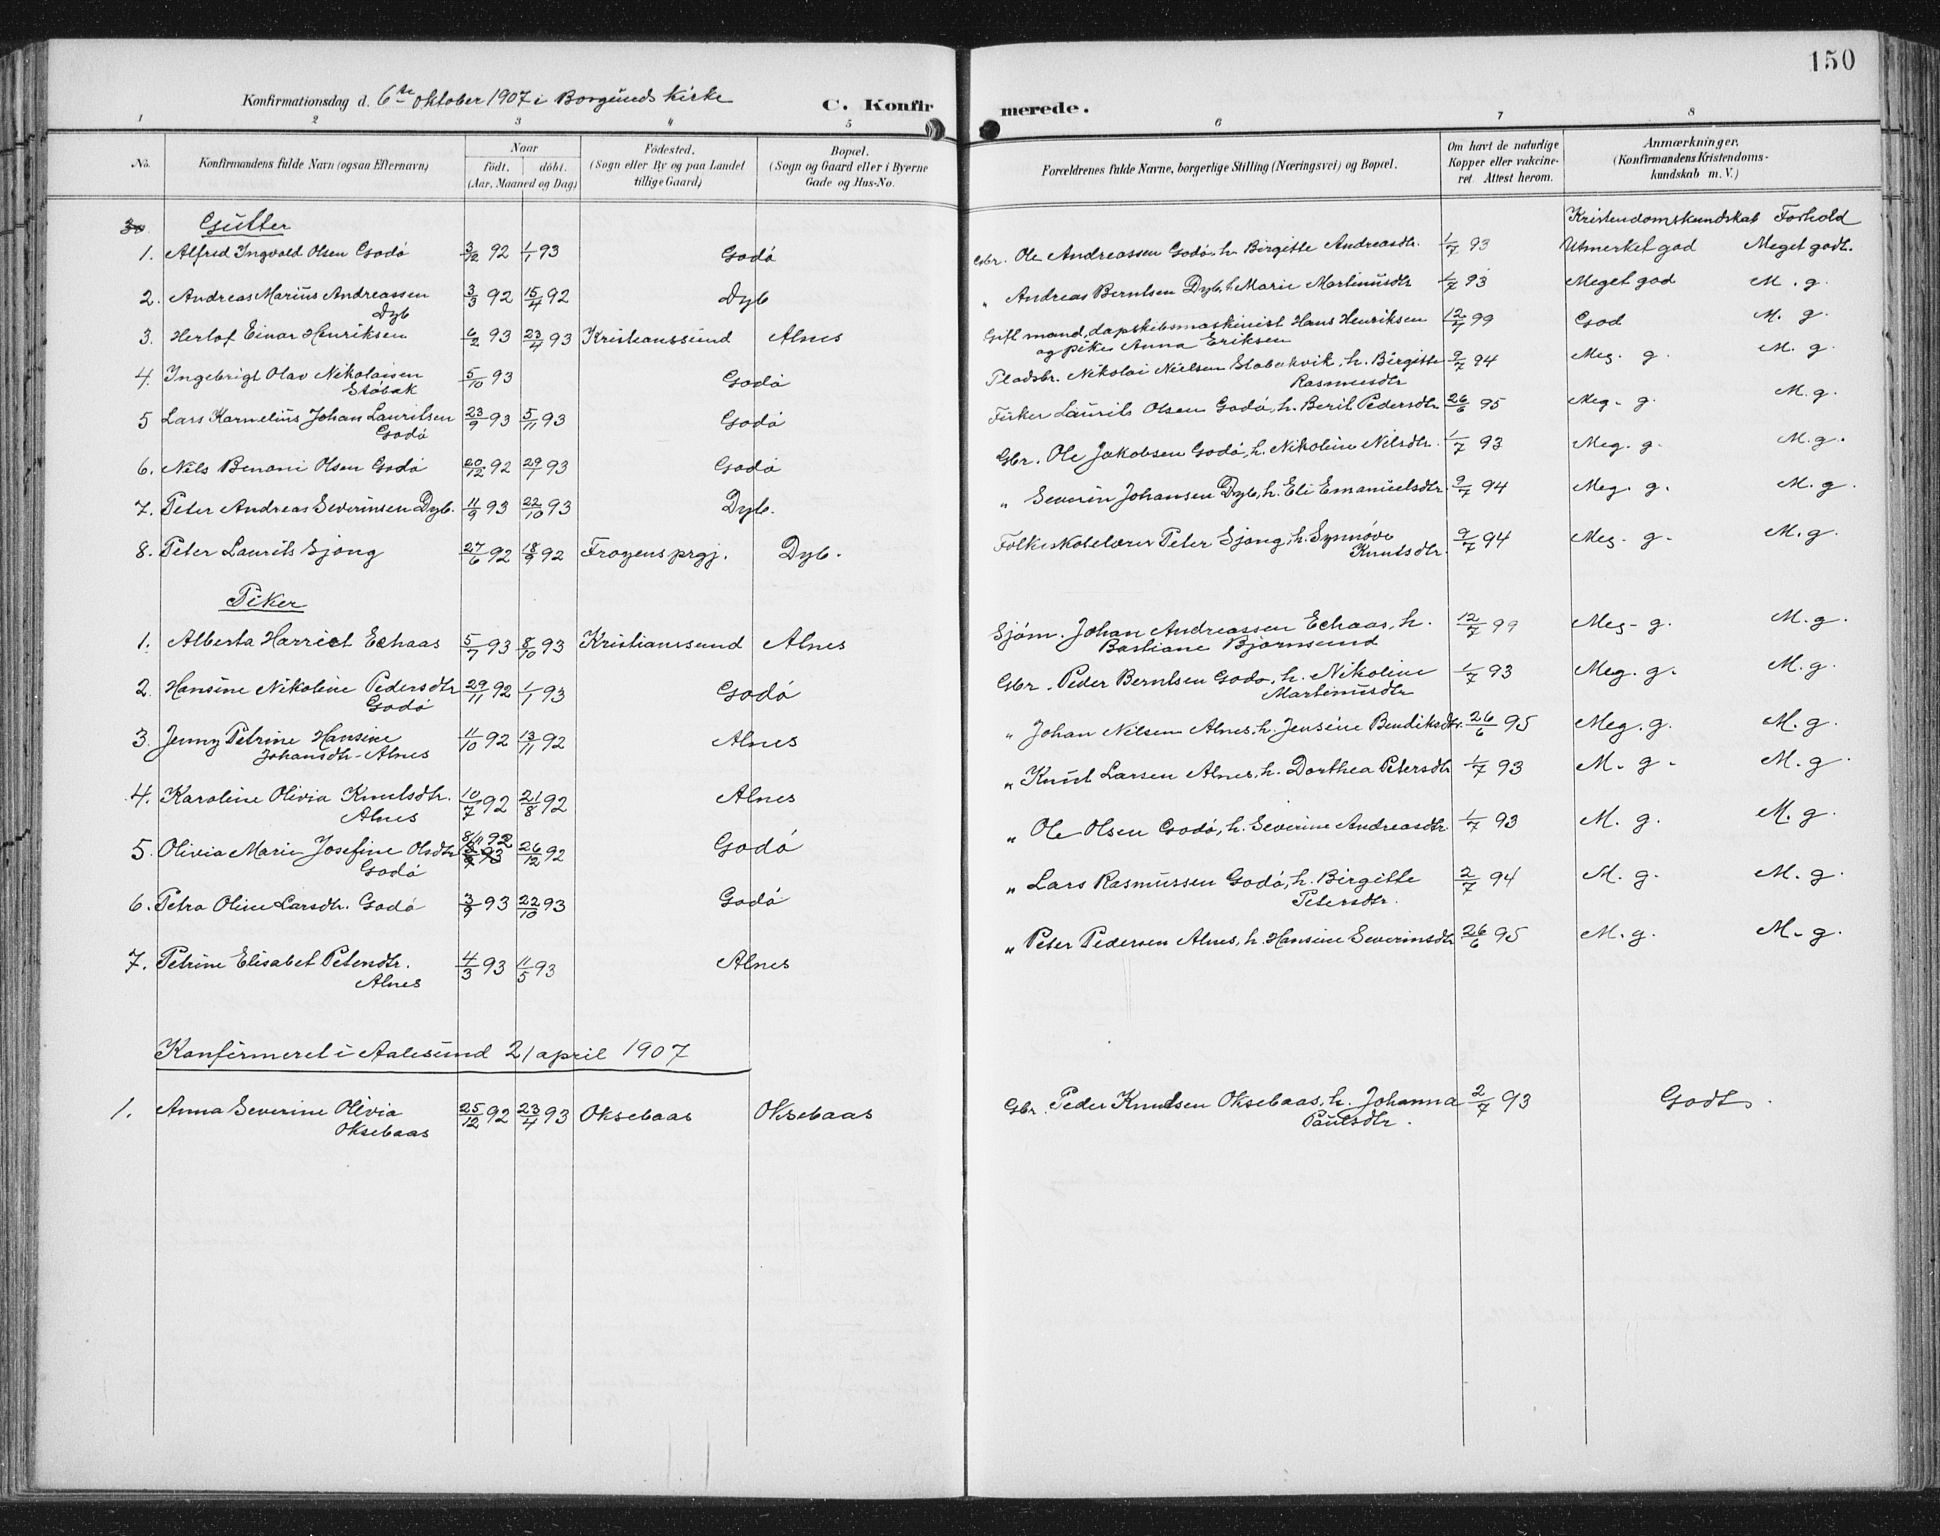 150
Konfirmationsdag d. 6te oktober 1907 i Borgunds Kirke C. Konfirmerede.
1 2 3 4 5 6 7 8
No. Konfirmandens fulde Navn (ogsaa Efternavn) Naar Födested. Bopæl. Forældrenes fulde Navne, borgerlige Stilling (Næringsvei) og Bopæl. Om havt de naturlige Anmærkninger.
född. döbt. (Sogn eller By og paa Landet (Sogn og Gaard eller i Byerne Kopper eller vakcine- (Konfirmandens Kristendoms-
(Aar, Maaned og Dag) tillige Gaard) Gade og Hus-No. ret. Attest herom. kundskab m. V.)
Gutter Kristendomskundskab Forhold
1. Alfred Ingvald Olsen Godö 3/12 92 1/1 93 Godö Gbr. Ole Andreassen Godö, h. Birgitte Andreasdtr. 1/7 93 Utmerket god Meget godt.
2. Andreas Marius Andreassen 3/3 92 15/4 92 Dyb " Andreas Berntsen Dyb, h. Marie Martinusdtr 1/7 93 Meget god M. g.
Dyb
3. Herlof Einar Henriksen 6/2 93 23/4 93 Kristianssund Alnes Gift mand, dapskibsmaskinist Hans Henriksen 12/7 99 God M. g.
og pike Anna Eriksen
4. Ingebrigt Olav Nikolaisen 5/10 93 Godö Pladsbr. Nikolai Nielsen Stabekvik, h. Birgitte 9/7 94 Meg. g. M. g.
Stöbak Rasmusdtr
5 Lars Karnelius Johan Lauritsen 23/9 93 5/11 93 Godö Fisker Laurits Olsen Godö, h. Berit Pedersdtr. 26/6 95 Meg. g. M. g.
Godö
6. Nils Benoni Olsen Godö 20/12 92 29/1 93 Godö Gbr. Ole Jakobsen Godö, h. Nikoline Nilsdtr. 1/7 93 Meg. g. M. g.
7. Peter Andreas Severinsen Dyb. 11/9 93 22/10 93 Dyb. " Severin Johansen Dyb, h. Eli Emanuelsdtr. 9/7 94 Meg. g. M. g.
8. Peter Laurits Sjong 27/6 92 18/9 92 Froyens prgj. Dyb. Folkeskolelærer Peter Sjong, h. Synnöve 9/7 94 Meg. g. M. g.
Knutsdtr.
Piker
1. Alberta Harriet Echaas 5/7 93 8/10 93 Kristianssund Alnes Sjöm. Johan Andreassen Echaas, h. 12/7 99 Meg. g. M. g.
Bastiane Bjørnsund
2. Hansine Nikoline Pedersdtr 29/11 92 1/1 93 Godö Gbr. Peder Berntsen Godö, h. Nikoline 1/7 93 Meg. g. M. g.
Godö Martinusdtr
3. Jenny Petrine Hansine 11/10 92 13/11 92 Alnes " Johan Nilsen Alnes, h. Jensine Bendiksdtr. 26/6 95 Meg. g. M. g.
Johansdtr. Alnes
4. Karoline Olivia Knutsdtr. 10/7 92 21/8 92 Alnes " Knut Larsen Alnes, h. Dorthea Petersdtr 1/7 93 M. g. M. g.
Alnes
5. Olivia Marie Josefine Olsdtr 8/11 92 26/12 92 Godö " Ole Olsen Godö, h. Severine Andreasdtr. 1/7 93 M. g. M. g.
Godö
6. Petra Oline Larsdtr. Godö 3/9 93 22/10 93 Godö " Lars Rasmussen Godö, h. Birgitte 2/7 94 M. g. M. g.
Petersdtr.
7. Petrine Elisabet Petersdtr. 4/3 93 11/5 93 Alnes " Peter Pedersen Alnes, h. Hansine Severinsdtr 26/6 95 M. g. M. g.
Alnes
Konfirmeret i Aalesund 21 april 1907
1. Anna Severine Olivia 25/12 92 23/4 93 Oksebaas Oksebaas Gbr. Peder Knudsen Oksebaas, h. Johanna 2/7 93 Godt.
Oksebaas Paulsdtr.